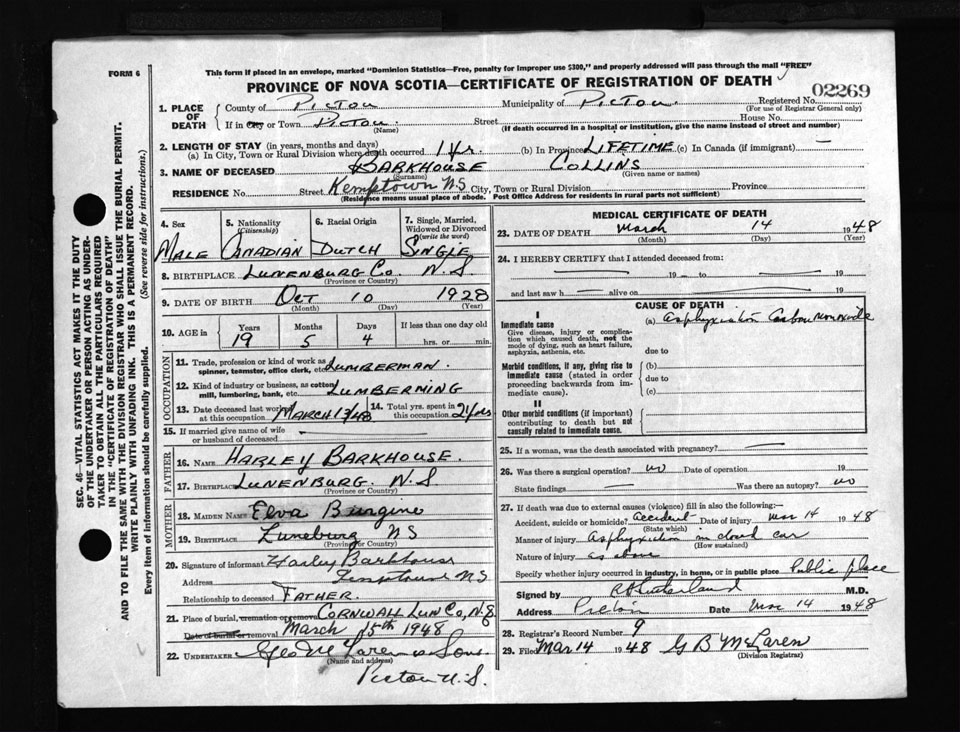 FORM 6
This form if placed in an envelope, marked "Dominion Statistics—Free, penalty for improper use $300," and properly addressed will pass through the mail "FREE"
PROVINCE OF NOVA SCOTIA—CERTIFICATE OF REGISTRATION OF DEATH
02269
1. PLACE OF DEATH
County of Pictou Municipality of Pictou Registered No.
(For use of Registrar General only)
If in City or Town Pictou Street House No.
(Name) (If death occurred in a hospital or institution, give the name instead of street and number)
2. LENGTH OF STAY (in years, months and days)
(a) In City, Town or Rural Division where death occurred 1 yr. (b) In Province LIFETIME (c) In Canada (if immigrant) —
3. NAME OF DECEASED BARKHOUSE COLLINS
(Surname) (Given name or names)
RESIDENCE No. Street Kemptown N.S City, Town or Rural Division Province
(Residence means usual place of abode. Post Office Address for residents in rural parts not sufficient)
4. Sex 5. Nationality (Citizenship) 6. Racial Origin 7. Single, Married, Widowed or Divorced (write the word)
MALE CANADIAN DUTCH SINGLE
8. BIRTHPLACE LUNENBURG Co. N.S.
(Province or Country)
9. DATE OF BIRTH Oct 10 1928
(Month) (Day) (Year)
10. AGE in Years Months Days If less than one day old
19 5 4 hrs. or min.
OCCUPATION
11. Trade, profession or kind of work as spinner, teamster, office clerk, etc. LUMBERMAN.
12. Kind of industry or business, as cotton mill, lumbering, bank, etc. LUMBERMING
13. Date deceased last worked at this occupation MARCH 13/48 14. Total yrs. spent in this occupation 2 yrs
15. If married give name of wife or husband of deceased —
FATHER
16. NAME HARLEY BARKHOUSE.
17. BIRTHPLACE LUNENBURG. N.S
(Province or Country)
MOTHER
18. MAIDEN NAME Elva Burgine
19. BIRTHPLACE Luneburg NS
(Province or Country)
20. Signature of informant Harley Barkhouse
Address Kemptown N.S
Relationship to deceased FATHER.
21. Place of burial, cremation or removal CORNWALL LUN Co, N.S
Date of burial or removal March 15th 1948
22. UNDERTAKER Geo McLaren & Sons
(Name and address)
Pictou N.S.
MEDICAL CERTIFICATE OF DEATH
23. DATE OF DEATH March 14 1948
(Month) (Day) (Year)
24. I HEREBY CERTIFY that I attended deceased from:
— 19 — to — 19
and last saw h — alive on — 19
CAUSE OF DEATH
I
Immediate cause
Give disease, injury or complication which caused death, not the mode of dying, such as heart failure, asphyxia, asthenia, etc.
(a) Asphyxiation Carbon monoxide
due to
Morbid conditions, if any, giving rise to immediate cause (stated in order proceeding backwards from immediate cause).
(b)
due to
(c)
II
Other morbid conditions (if important) contributing to death but not causally related to immediate cause.
25. If a woman, was the death associated with pregnancy? —
26. Was there a surgical operation? no Date of operation 19
State findings — Was there an autopsy? no
27. If death was due to external causes (violence) fill in also the following:—
Accident, suicide or homicide? accident Date of injury Mar 14 1948
(State which)
Manner of injury Asphyxiation in closed car
(How sustained)
Nature of injury as above
Specify whether injury occurred in industry, in home, or in public place Public place
Signed by Sutherland M.D.
Address Pictou Date Mar 14 1948
28. Registrar's Record Number 9
29. Filed Mar 14 1948 G B McLaren
(Division Registrar)
SEC. 46—VITAL STATISTICS ACT MAKES IT THE DUTY
OF THE UNDERTAKER OR PERSON ACTING AS UNDER-
TAKER TO OBTAIN ALL THE PARTICULARS REQUIRED
IN THE "CERTIFICATE OF REGISTRATION OF DEATH"
AND TO FILE THE SAME WITH THE DIVISION REGISTRAR WHO SHALL ISSUE THE BURIAL PERMIT.
WRITE PLAINLY WITH UNFADING INK. THIS IS A PERMANENT RECORD.
Every item of information should be carefully supplied. (See reverse side for instructions.)